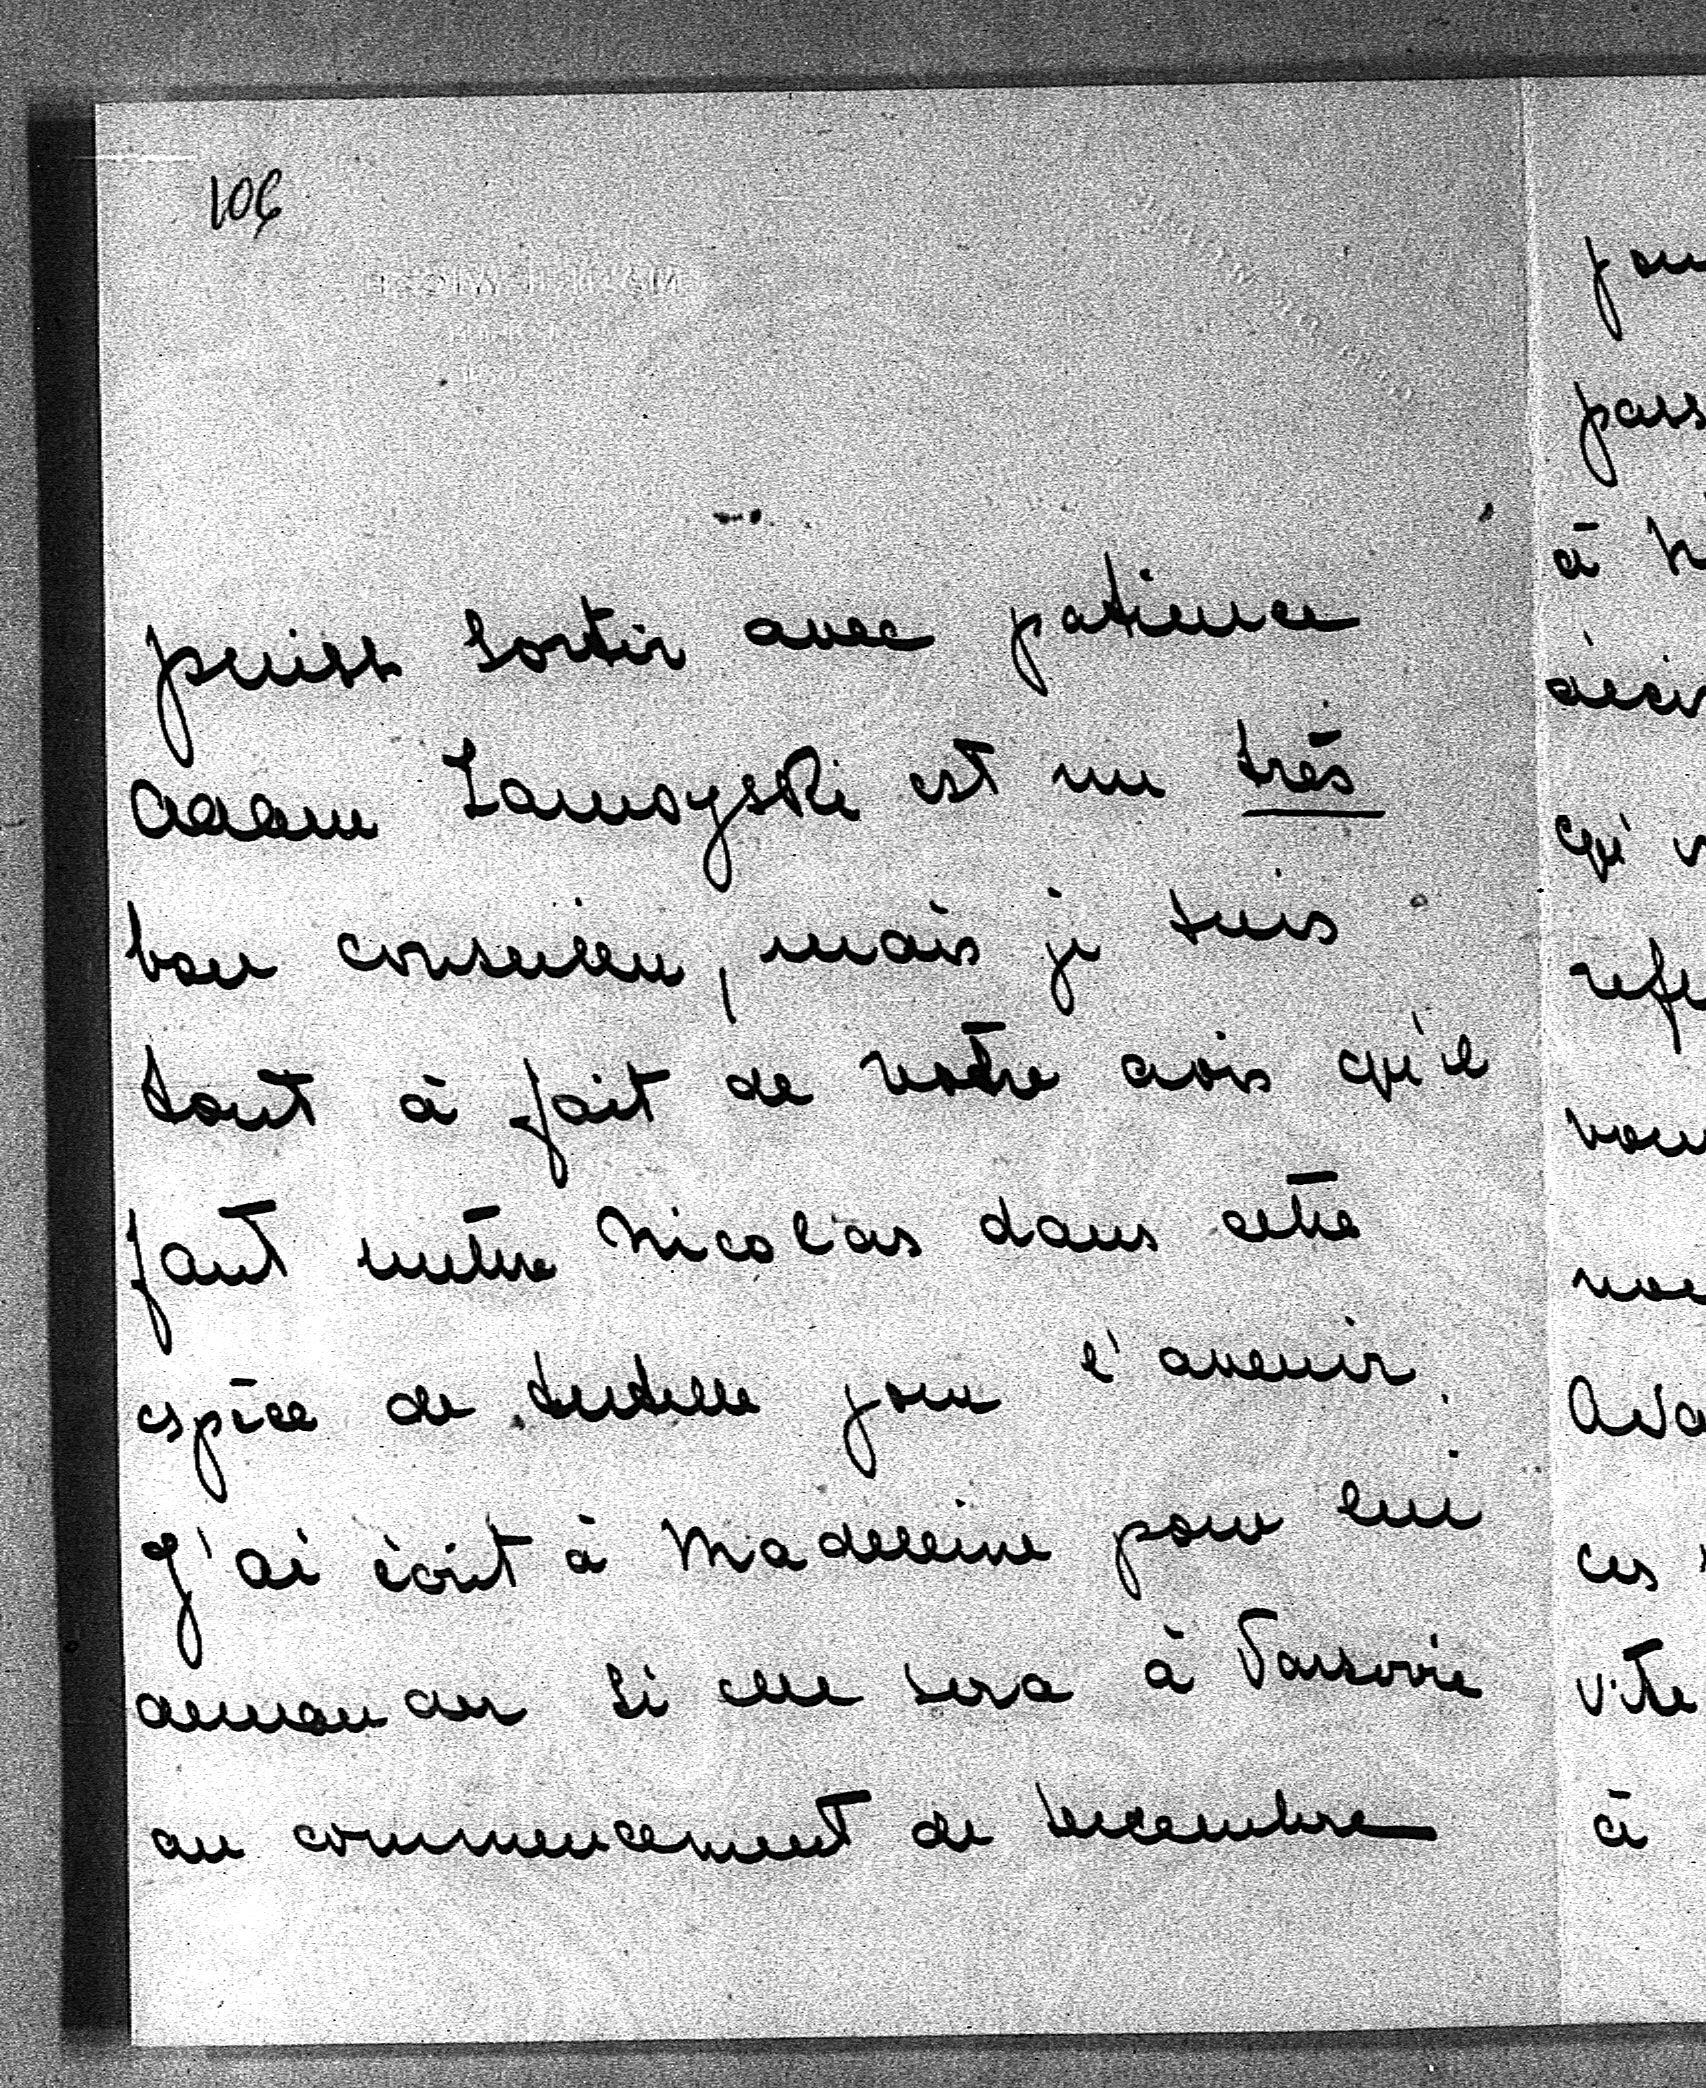 106
puisse sortir avec patience
Adam Zamoyski est un très
bon conseiller, mais je suis
tout à fait de votre avis qu'il
faut mettre Nicolas dans cette
espèce de tutelle pour l'avenir.
J'ai écrit à Madeleine pour lui
demander si elle sera à Varsovie
au commencement de Decembre
à
qu'
ces
vite
à